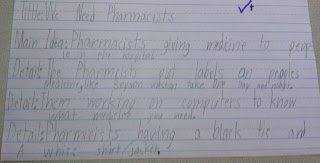 Title: We Need Pharmacists
Main Idea: Pharmacists giving medicine to people
in the hospital
Detail: The Pharmcists put labels on peoples
Medicine like take one day and night.
Detail: There working on computers to know
what you need.
Detail: Pharmicists having a black tie and
A white shirt/jacket.